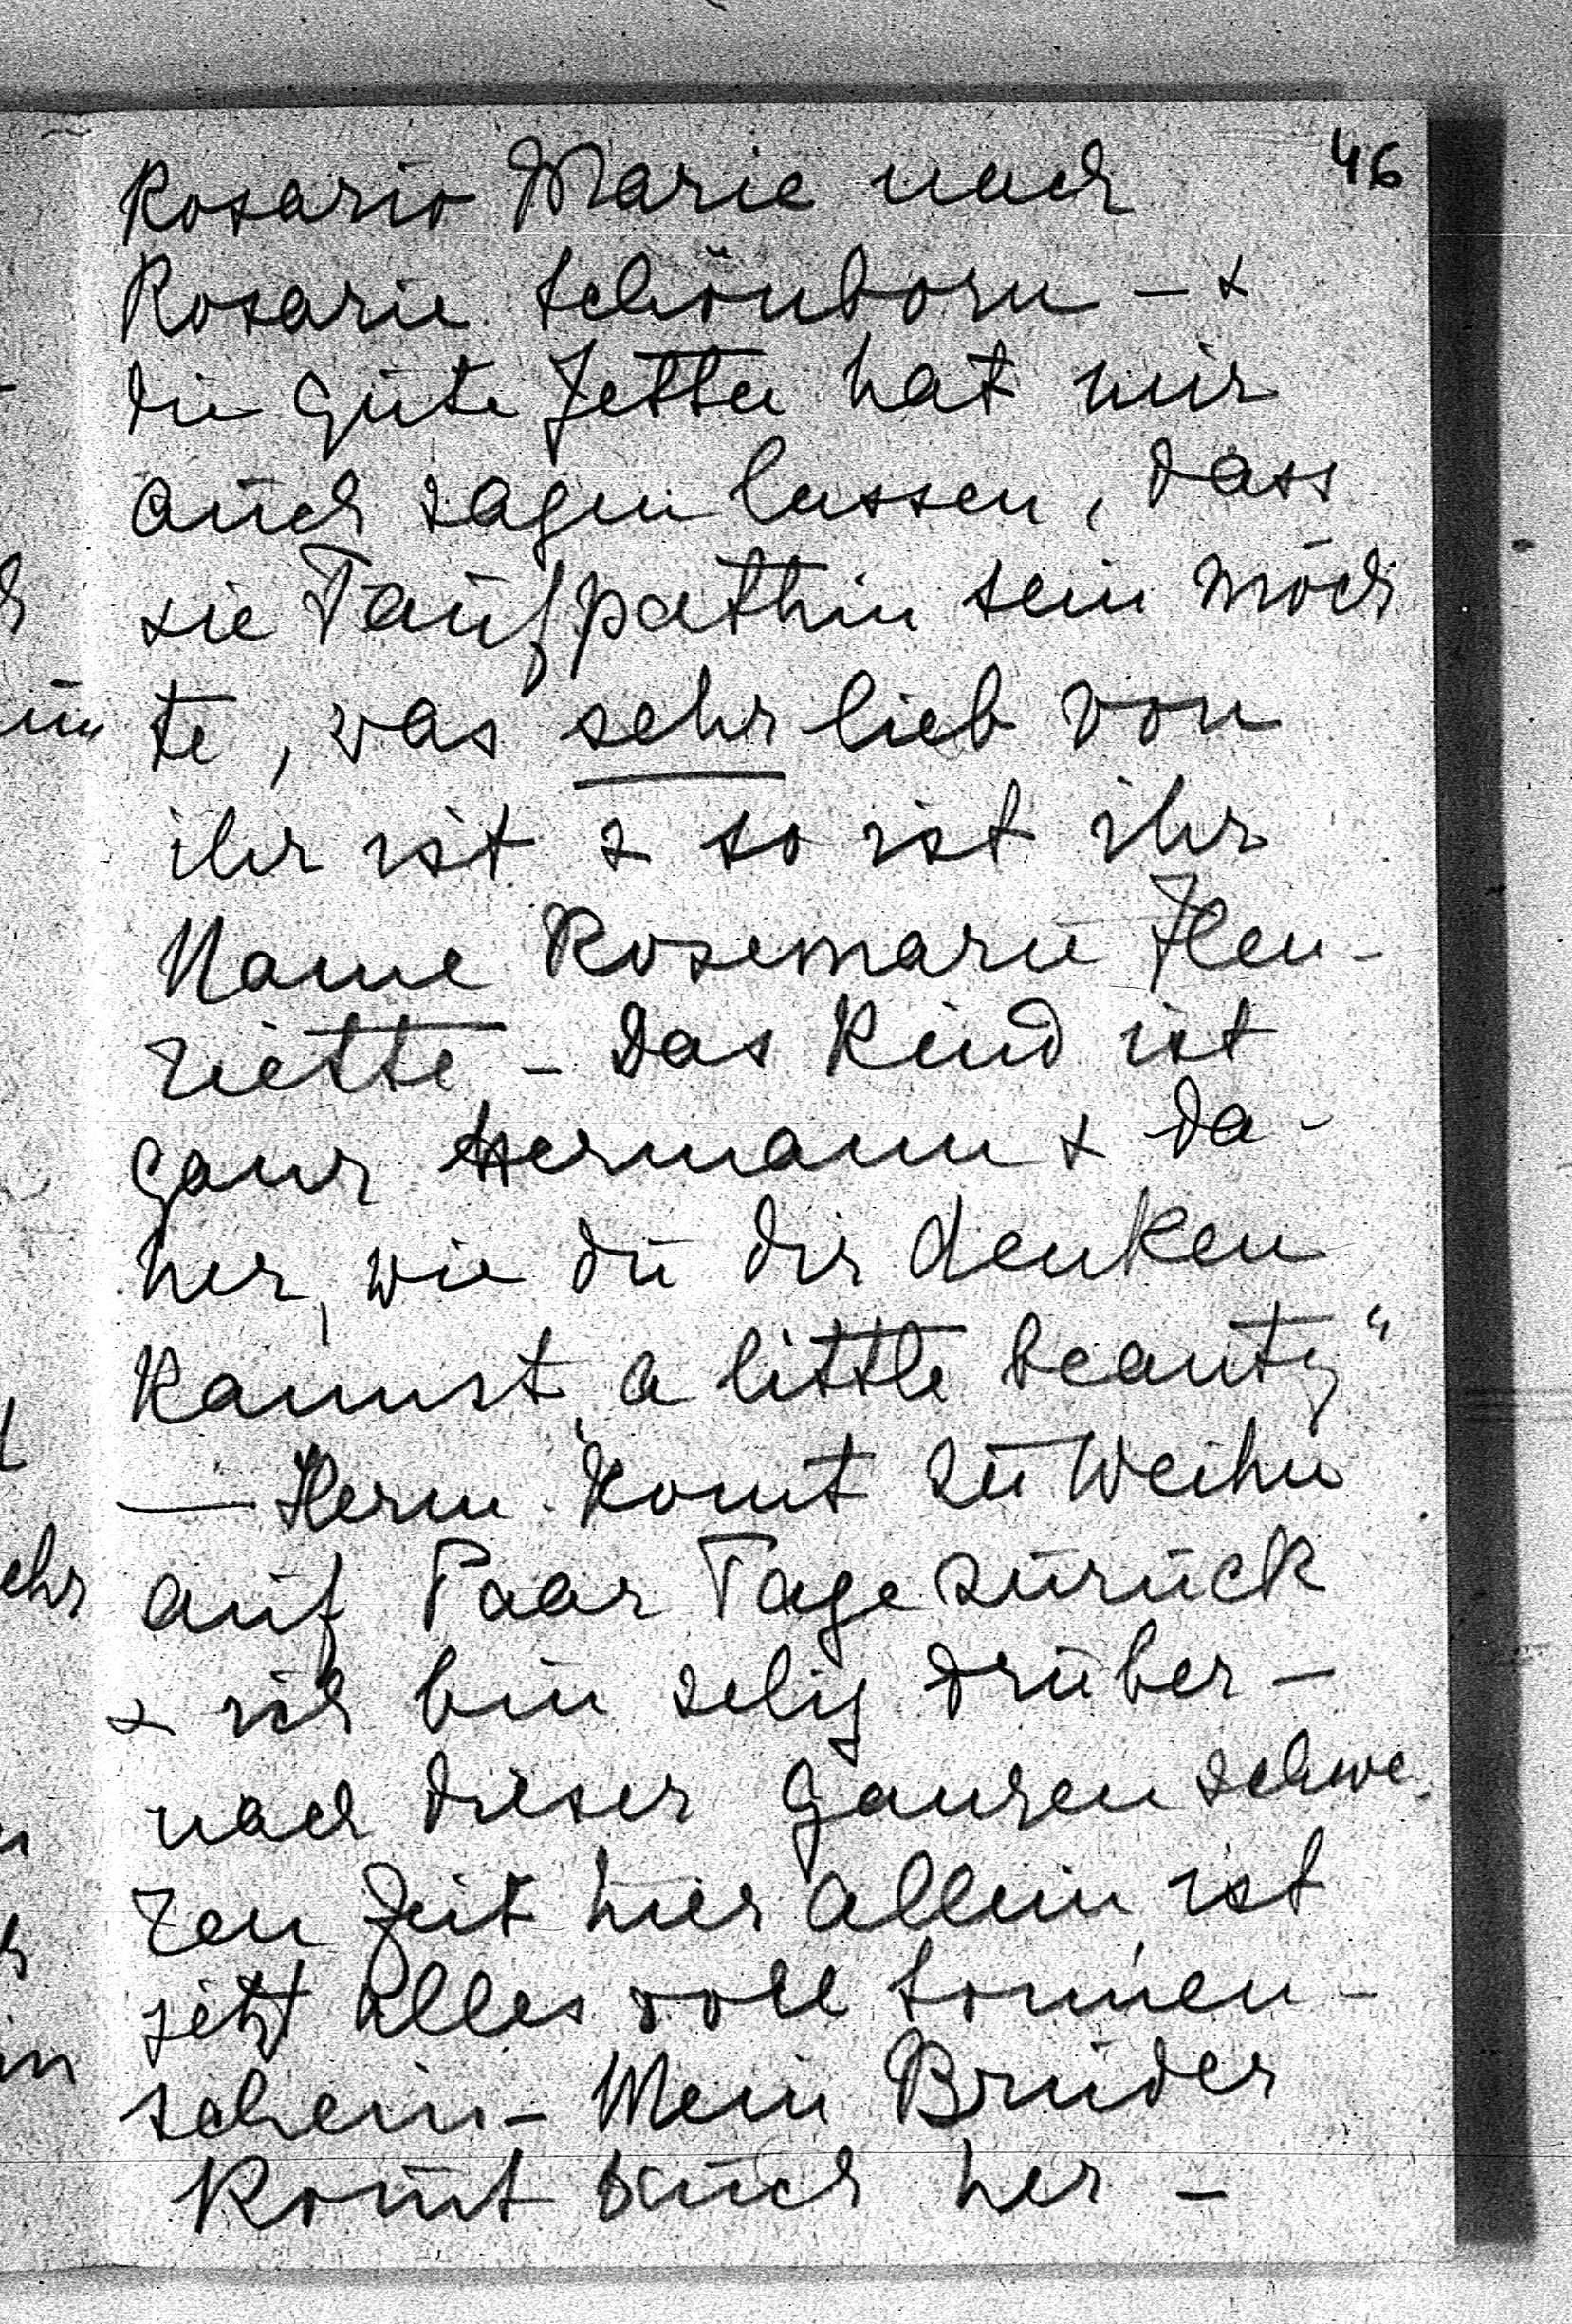 46
Rosario Marie nach
Rosarie Schönborn – &
die gute Jetta hat mir
auch sagen lassen, dass
sie Taufpathin sein möch
te, was sehr lieb von
ihr ist & so ist ihr
Name Rosemarie Hen-
riette – Das Kind ist
ganz Hermann & da-
her, wie du dir denken
kannst „a little beauty“
— Herm. komt zu Weihn
auf Paar Tage zurück
& ich bin selig drüber –
nach dieser ganzen schwe-
ren Zeit hier allein ist
jetzt Alles voll Sonnen-
schein – Mein Bruder
komt auch her –